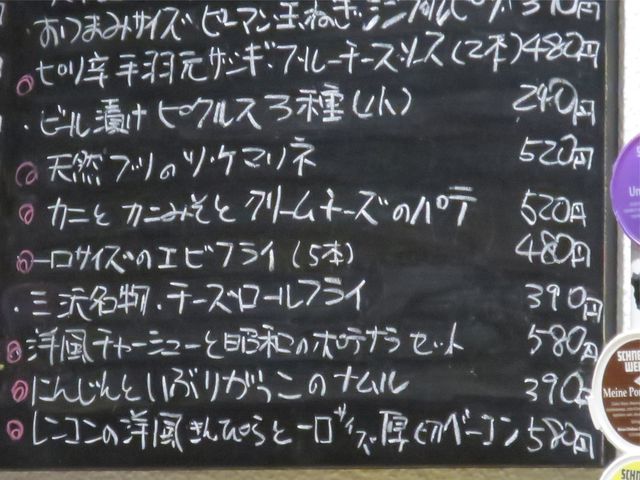 おつまみサイズ ピーマン玉ねぎ
ピリ辛手羽元ザンギ・ブルーチーズソース(2本) 480円
・ビール漬けピクルス3種(小) 240円
天然ブリのツケマリネ 520円
カニとカニみそとクリームチーズのパテ 520円
一口サイズのエビフライ(5本) 480円
・三浜名物・チーズロールフライ 390円
洋風チャーシューと昭和のポテサラセット 580円
にんじんといぶりがっこのナムル 390円
レンコンの洋風きんぴらと一口サイズ厚切ベーコン 580円
SCHNE
WEI
Meine Po
Un
SCHN